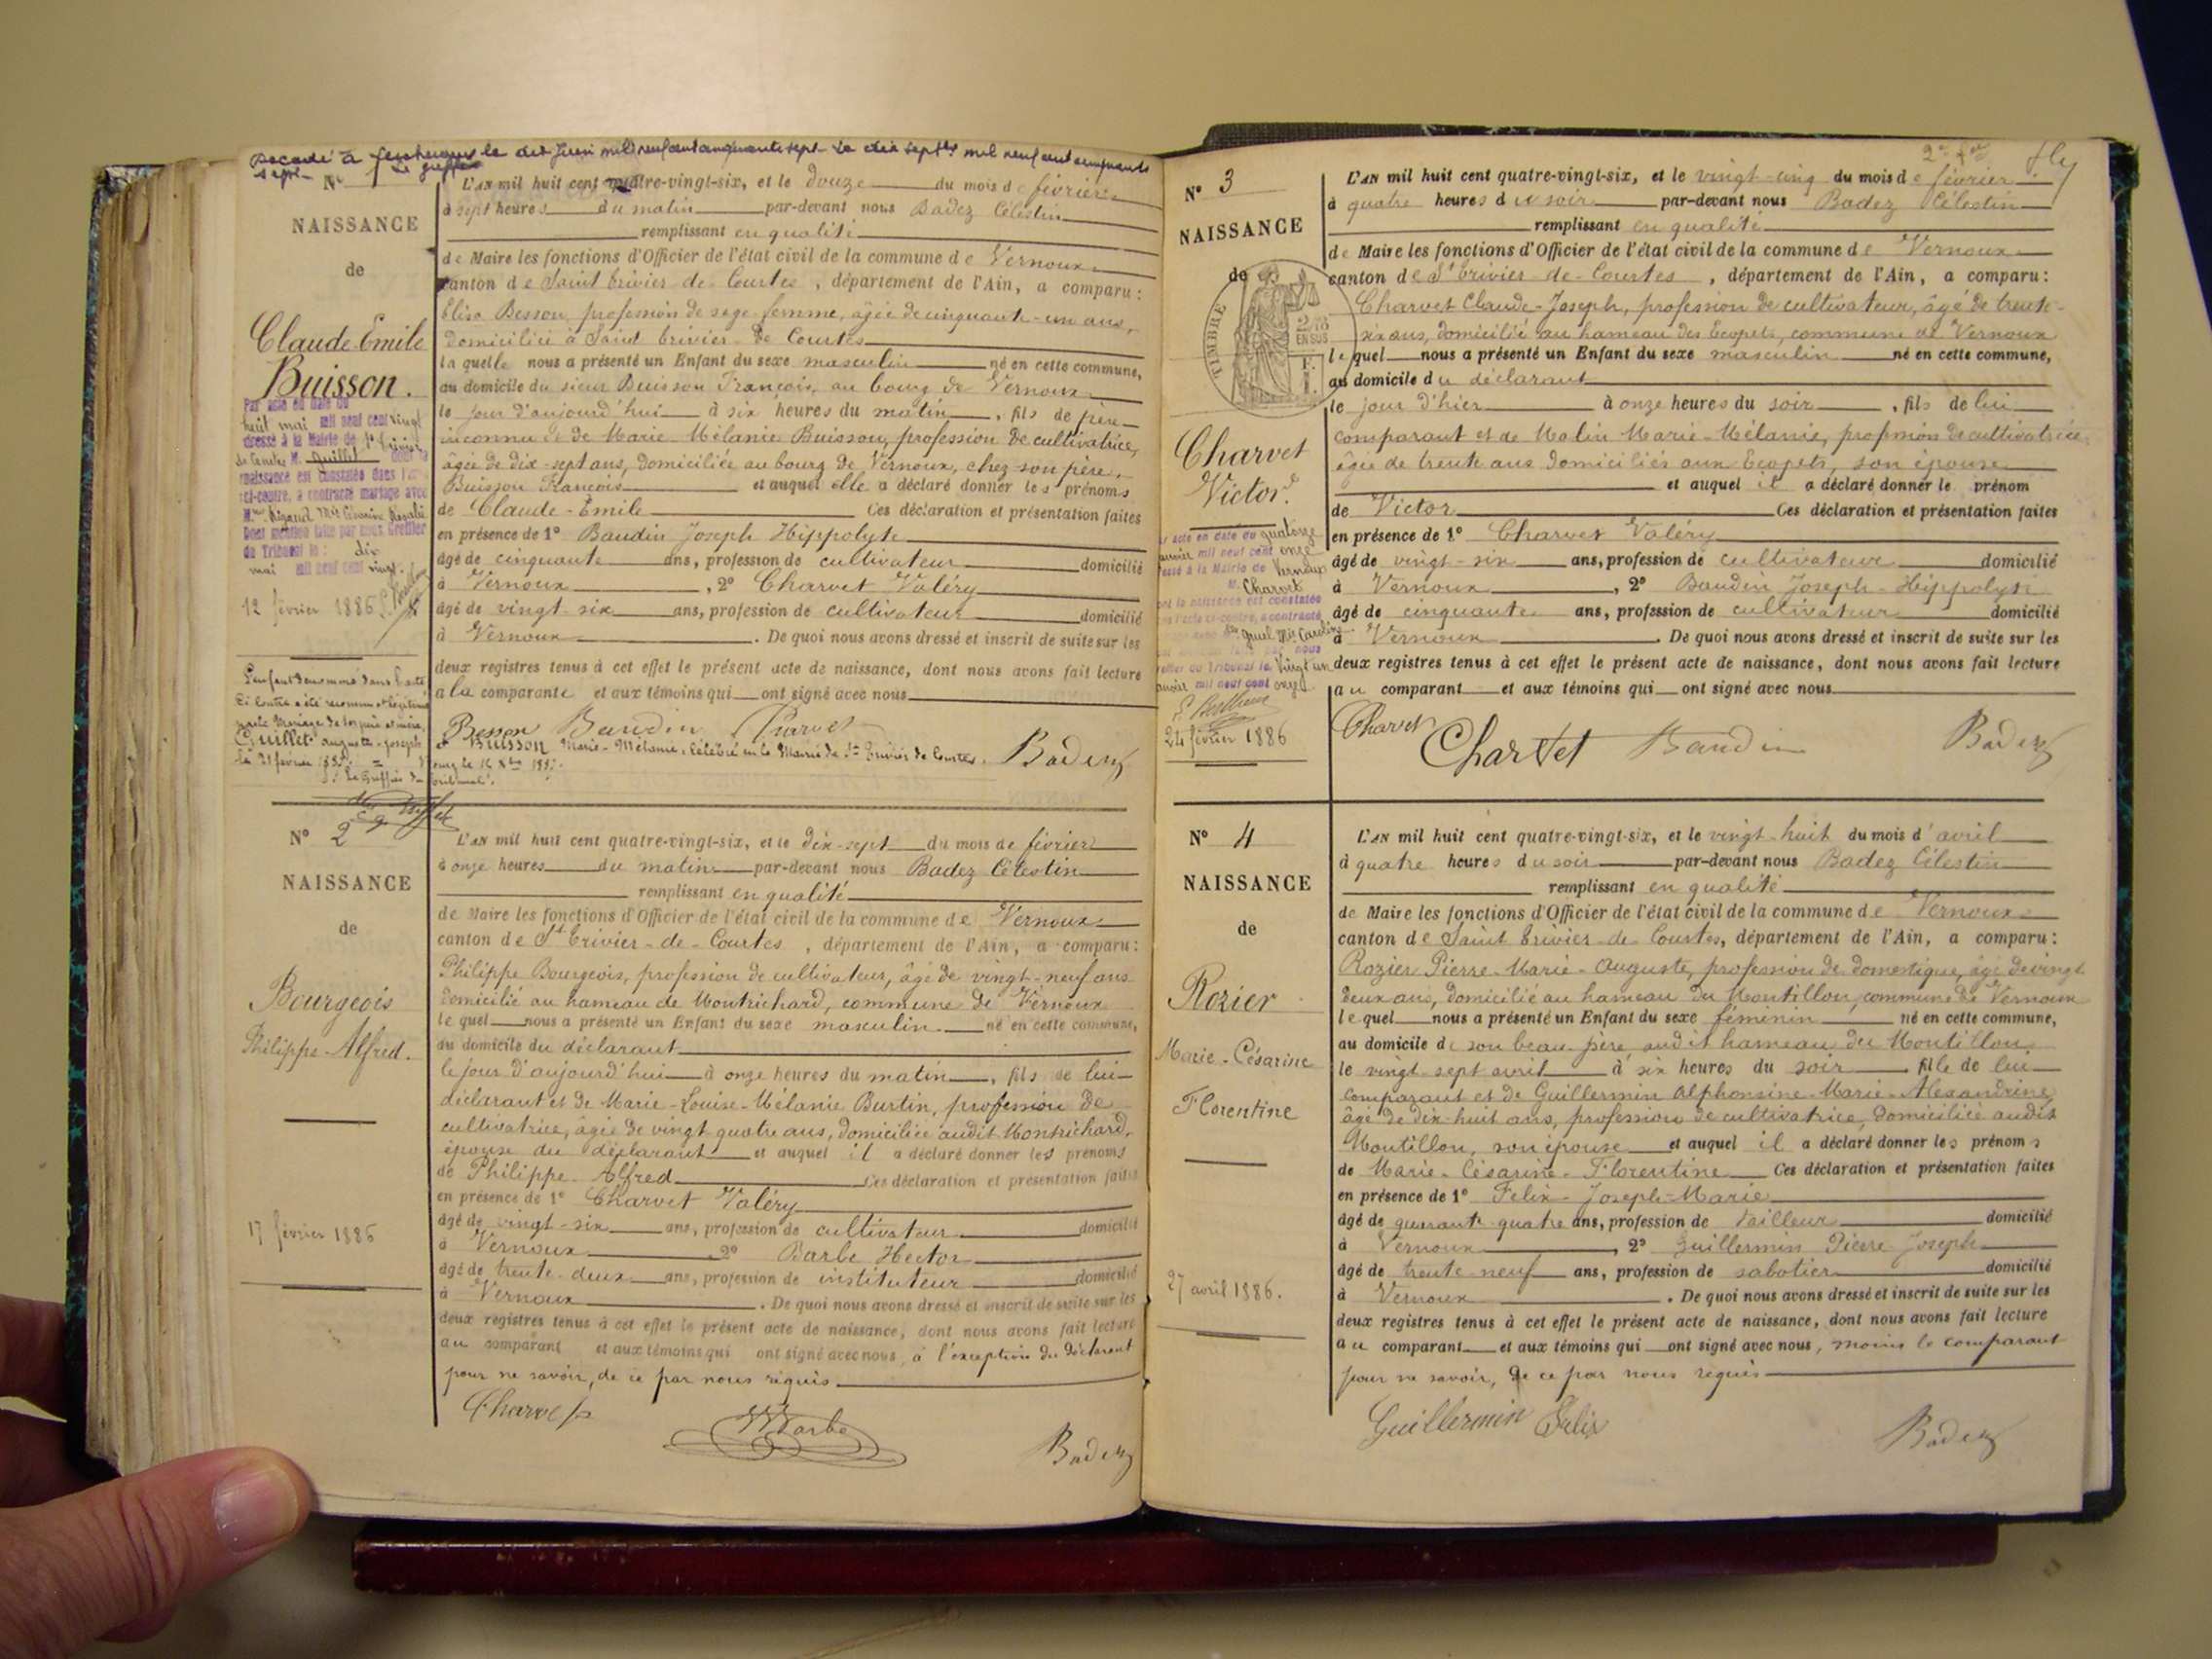 Décédé à le dix juin mil neuf cent cinquante sept. Le dix septbre mil neuf cent cinquante
sept.
N°
NAISSANCE
de
Claude Emile
Buisson.
Par acte en date du
huit mai mil neuf cent vingt
dressé à la Mairie de St Trivier
de Courtes M. Guillet dont la
naissance est constatée dans l'acte
ci-contre, a contracté mariage avec
Mlle Rigaud
Dont mention faite par nous Greffier
du Tribunal le : dix
mai mil neuf cent vingt.
12 février 1886
L'enfant dénommé dans l'acte
ci contre a été reconnu et légitimé
par le mariage de ses père et mère,
Guillet auguste-joseph
et Buisson Marie-Mélanie, célébré en la Mairie de St Trivier de Courtes.
L'AN mil huit cent quatre-vingt-six, et le douze du mois de février
à sept heures du matin par-devant nous Badez Célestin
remplissant en qualité
de Maire les fonctions d'Officier de l'état civil de la commune de Vernoux
canton de Saint Trivier de Courtes, département de l'Ain, a comparu :
Elisa Besson, profession de sage femme, âgée de cinquante-un ans,
domiciliée à Saint Trivier de Courtes
la quelle nous a présenté un Enfant du sexe masculin né en cette commune,
au domicile du sieur Buisson François, au bourg de Vernoux
le jour d'aujourd'hui à six heures du matin, fils de père
inconnu et de Marie Mélanie Buisson, profession de cultivatrice,
âgée de dix-sept ans, domiciliée au bourg de Vernoux, chez son père,
Buisson François et auquel elle a déclaré donner les prénoms
de Claude-Emile Ces déclaration et présentation faites
en présence de 1° Baudin Joseph Hippolyte
âgé de cinquante ans, profession de cultivateur domicilié
à Vernoux, 2° Charvet Valéry
âgé de vingt-six ans, profession de cultivateur domicilié
à Vernoux. De quoi nous avons dressé et inscrit de suite sur les
deux registres tenus à cet effet le présent acte de naissance, dont nous avons fait lecture
a la comparante et aux témoins qui ont signé avec nous
Besson Baudin Charvet
Badez
N° 2
NAISSANCE
de
Bourgeois
Philippe-Alfred.
17 février 1886
L'AN mil huit cent quatre-vingt-six, et le dix-sept du mois de février
à onze heures du matin par-devant nous Badez Célestin
remplissant en qualité
de Maire les fonctions d'Officier de l'état civil de la commune de Vernoux
canton de St Trivier-de-Courtes, département de l'Ain, a comparu :
Philippe Bourgeois, profession de cultivateur, âgé de vingt-neuf ans
domicilié au hameau de Montrichard, commune de Vernoux
le quel nous a présenté un Enfant du sexe masculin né en cette commune,
au domicile du déclarant
le jour d'aujourd'hui à onze heures du matin, fils de lui
déclarant et de Marie-Louise-Mélanie Burtin, profession de
cultivatrice, âgée de vingt quatre ans, domiciliée audit Montrichard,
épouse du déclarant et auquel il a déclaré donner les prénoms
de Philippe Alfred Ces déclaration et présentation faites
en présence de 1° Charvet Valéry
âgé de vingt-six ans, profession de cultivateur domicilié
à Vernoux, 2° Barbe Hector
âgé de trente-deux ans, profession de instituteur domicilié
à Vernoux. De quoi nous avons dressé et inscrit de suite sur les
deux registres tenus à cet effet le présent acte de naissance, dont nous avons fait lecture
au comparant et aux témoins qui ont signé avec nous, à l'exception du déclarant
pour ne savoir, de ce par nous requis
Charvet
Barbe
Badez
N° 3
NAISSANCE
de
TIMBRE
2/10
EN SUS
Charvet
Victor.
Par acte en date du quatorze
janvier mil neuf cent onze
dressé à la Mairie de Vernoux
M. Charvet
dont la naissance est constatée
dans l'acte ci-contre, a contracté
Tribunal le vingt un
janvier mil neuf cent onze
24 février 1886
L'AN mil huit cent quatre-vingt-six, et le vingt-cinq du mois de février
à quatre heures du soir par-devant nous Badez Célestin
remplissant en qualité
de Maire les fonctions d'Officier de l'état civil de la commune de Vernoux
canton de St Trivier-de-Courtes, département de l'Ain, a comparu :
Charvet Claude-Joseph, profession de cultivateur, âgé de trente-
six ans, domicilié au hameau des Ecopets, commune de Vernoux
lequel nous a présenté un Enfant du sexe masculin né en cette commune,
au domicile du déclarant
le jour d'hier à onze heures du soir, fils de lui
comparant et de Malin Marie-Mélanie, profession de cultivatrice
âgée de trente ans domiciliés aux Ecopets, son épouse
et auquel il a déclaré donner le prénom
de Victor Ces déclaration et présentation faites
en présence de 1° Charvet Valéry
âgé de vingt-six ans, profession de cultivateur domicilié
à Vernoux, 2° Baudin Joseph-Hippolyte
âgé de cinquante ans, profession de cultivateur domicilié
à Vernoux. De quoi nous avons dressé et inscrit de suite sur les
deux registres tenus à cet effet le présent acte de naissance, dont nous avons fait lecture
au comparant et aux témoins qui ont signé avec nous
Charvet
Charvet Baudin Badez
N° 4
NAISSANCE
de
Rozier
Marie-Césarine
Florentine
27 avril 1886.
L'AN mil huit cent quatre-vingt-six, et le vingt-huit du mois d'avril
à quatre heures du soir par-devant nous Badez Célestin
remplissant en qualité
de Maire les fonctions d'Officier de l'état civil de la commune de Vernoux
canton de Saint Trivier-de-Courtes, département de l'Ain, a comparu :
Rozier Pierre-Marie-Auguste, profession de domestique, âgé de vingt
deux ans, domicilié au hameau du Montillon, commune de Vernoux
lequel nous a présenté un Enfant du sexe féminin né en cette commune,
au domicile de son beau-père audit hameau du Montillon
le vingt sept avril à six heures du soir fille de lui
comparant et de Guillermin Alphonsine-Marie-Alexandrine,
âgée de dix-huit ans, profession de cultivatrice, domiciliée audit
Montillon, son épouse et auquel il a déclaré donner les prénoms
de Marie-Césarine-Florentine Ces déclaration et présentation faites
en présence de 1° Felix-Joseph-Marie
âgé de quarante-quatre ans, profession de tailleur domicilié
à Vernoux, 2° Guillermin Pierre Joseph
âgé de trente-neuf ans, profession de sabotier domicilié
à Vernoux. De quoi nous avons dressé et inscrit de suite sur les
deux registres tenus à cet effet le présent acte de naissance, dont nous avons fait lecture
au comparant et aux témoins qui ont signé avec nous, moins le comparant
pour ne savoir, de ce par nous requis
Guillermin Felix
Badez